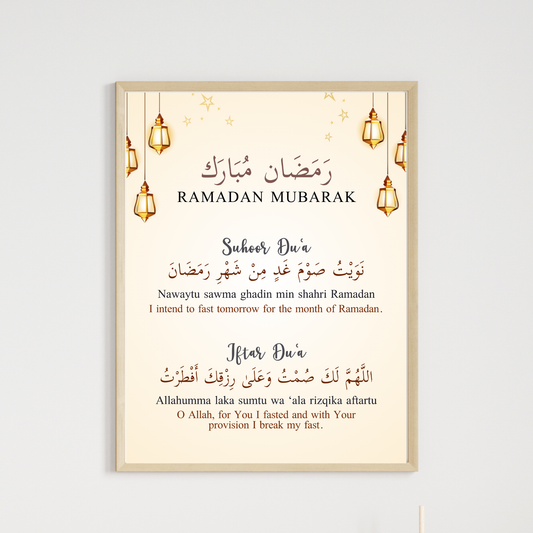 رَمَضَان مُبَارَك
RAMADAN MUBARAK
Suhoor Du'a
نَوَيْتُ صَوْمَ غَدٍ مِنْ شَهْرِ رَمَضَانَ
Nawaytu sawma ghadin min shahri Ramadan
I intend to fast tomorrow for the month of Ramadan.
Iftar Du'a
اللَّهُمَّ لَكَ صُمْتُ وَعَلَىٰ رِزْقِكَ أَفْطَرْتُ
Allahumma laka sumtu wa ‘ala rizqika aftartu
O Allah, for You I fasted and with Your
provision I break my fast.